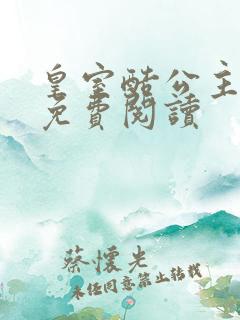 皇室酷公主
免費閱讀
蔡懷光
未經同意禁止轉載